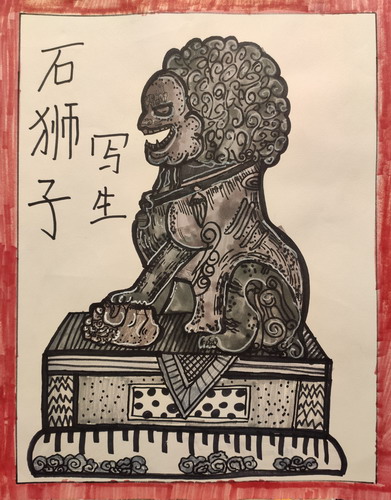 石狮子
写生